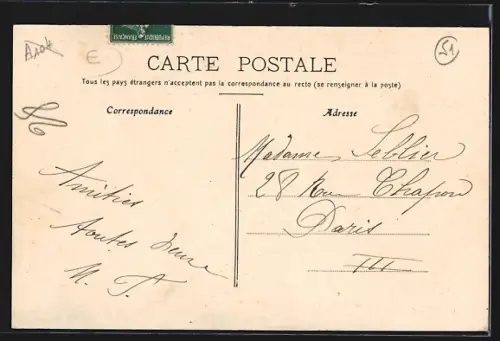 A204
E
RÉPUBLIQUE FRANÇAISE
51
CARTE POSTALE
Tous les pays étrangers n'acceptent pas la correspondance au recto (se renseigner à la poste)
Correspondance
Amitiés
toutes
M. T.
Adresse
Madame Leblier
28 Rue Chapon
Paris
III